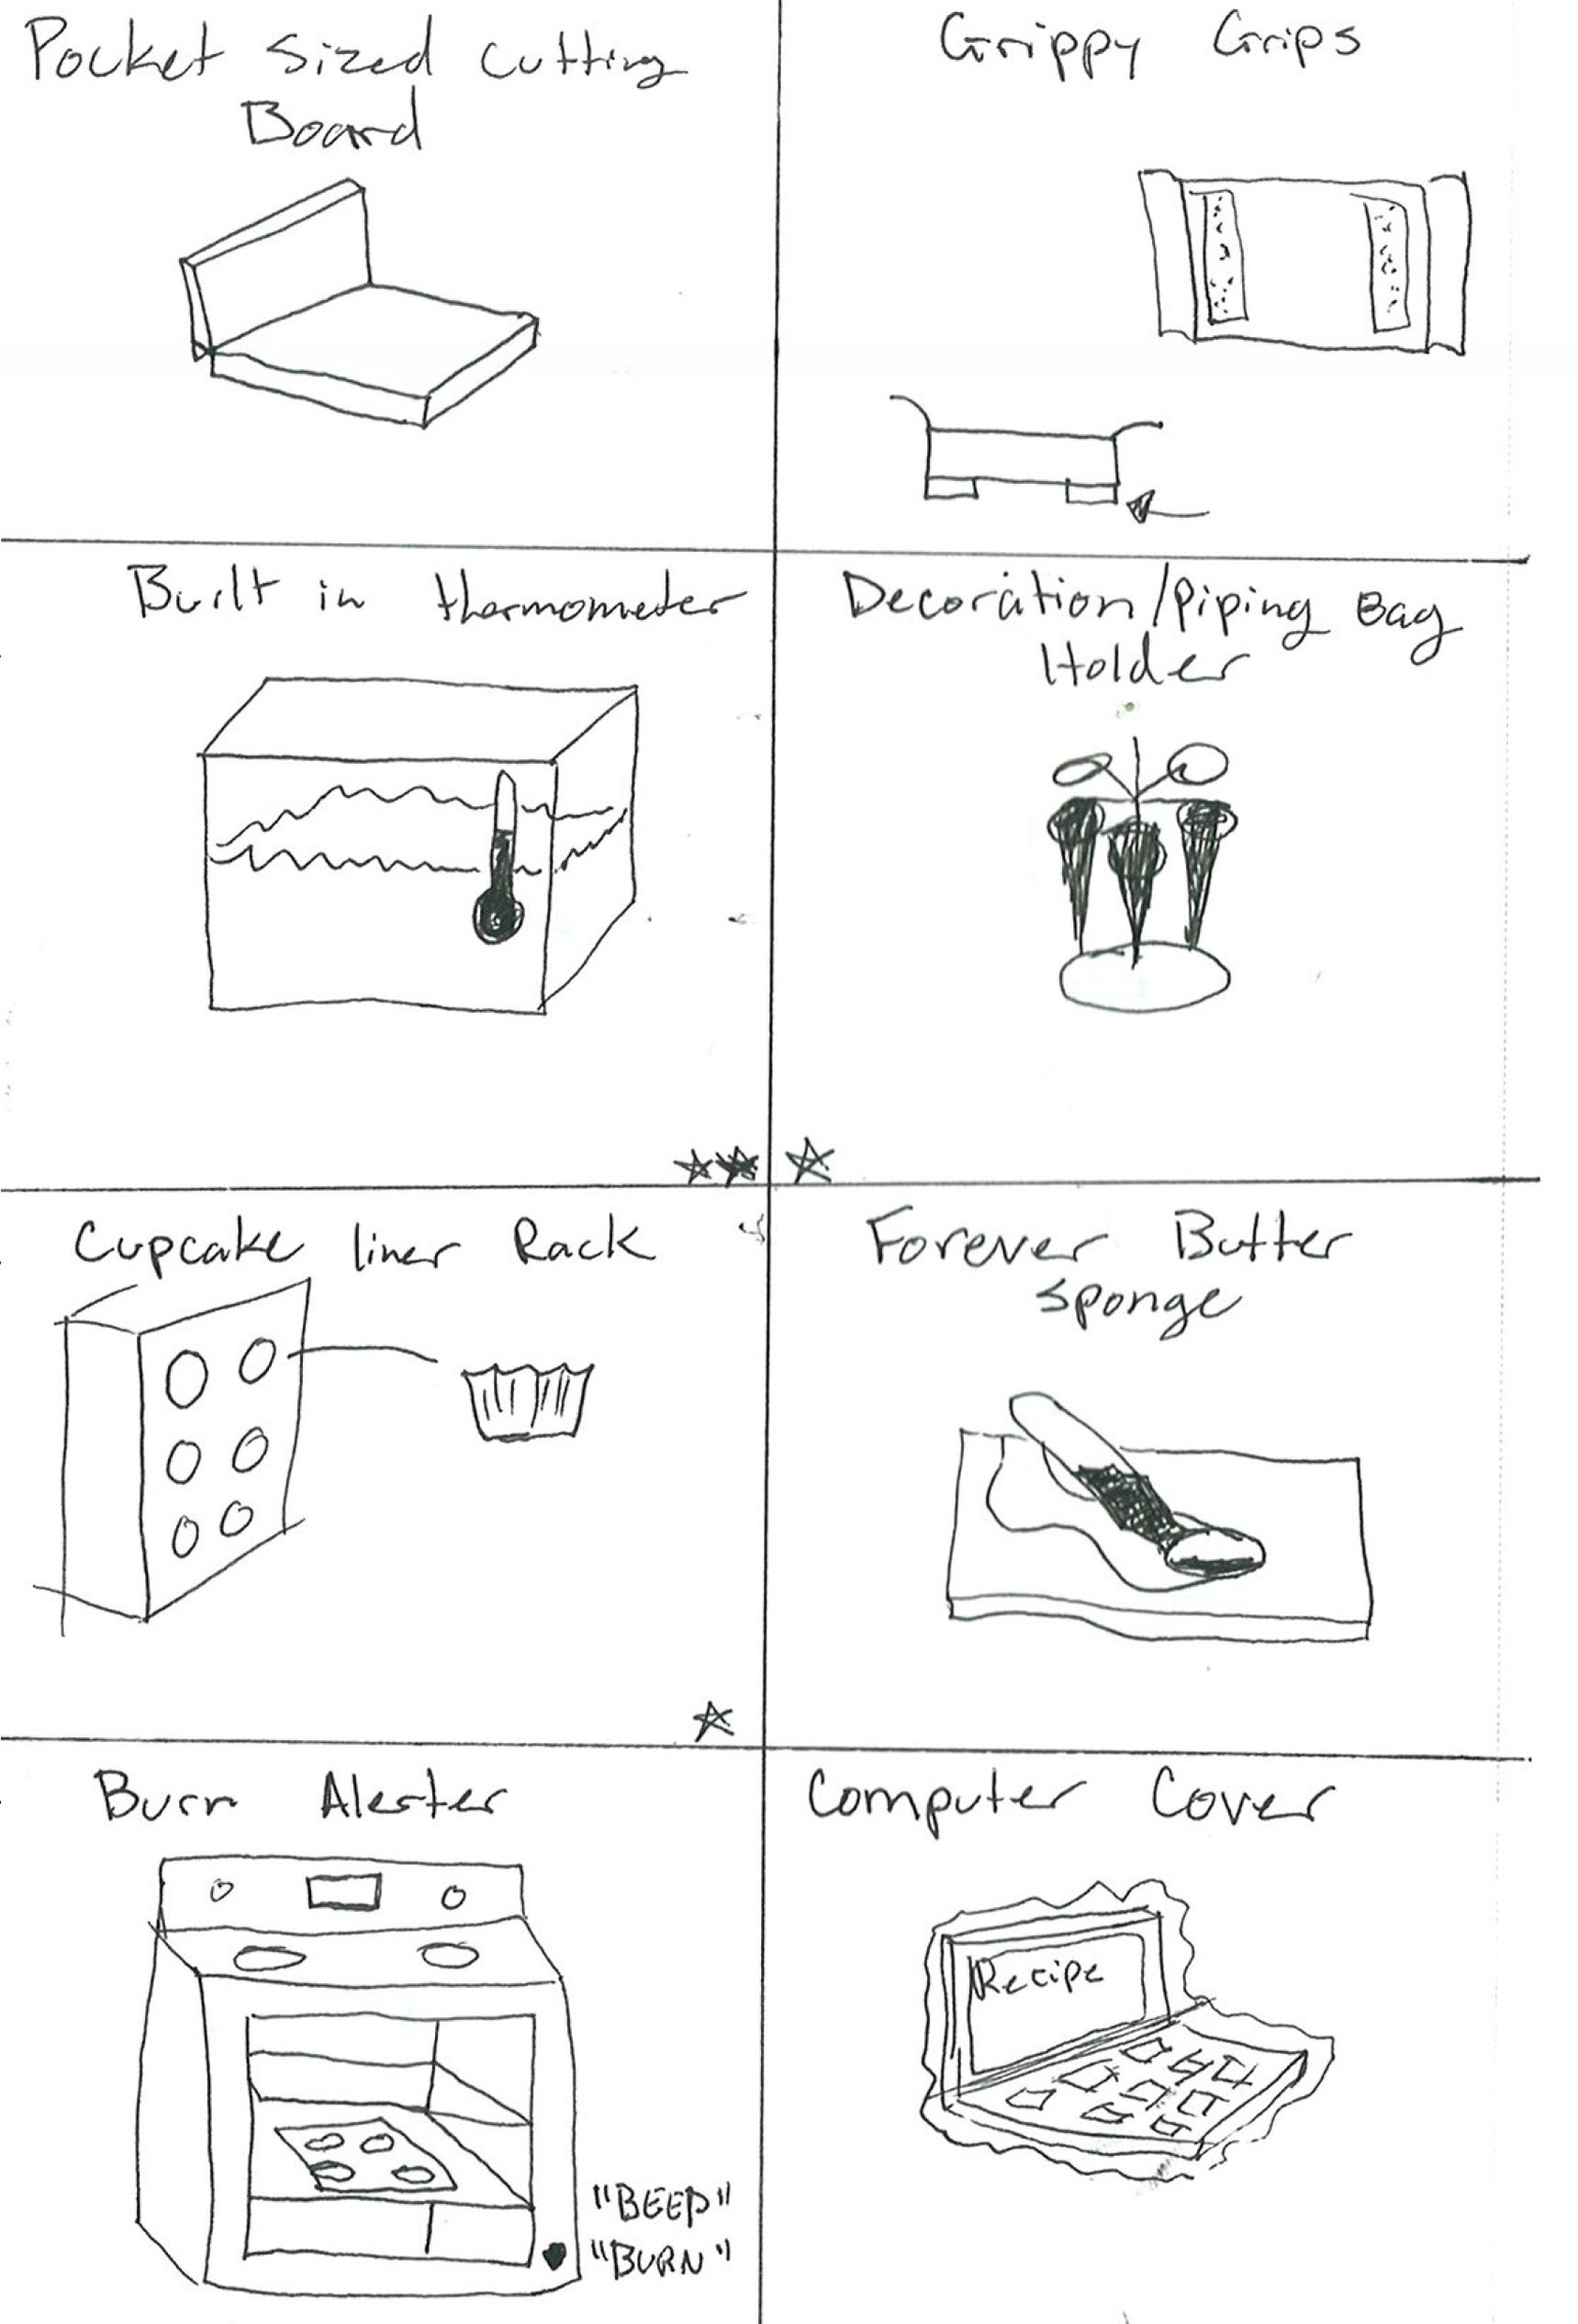 Pocket Sized Cutting
Board
Grippy Grips
Built in thermometer
Decoration/Piping Bag
Holder
Cupcake liner Rack
Forever Butter
Sponge
Burn Alerter
"BEEP"
"BURN"
Computer Cover
Recipe